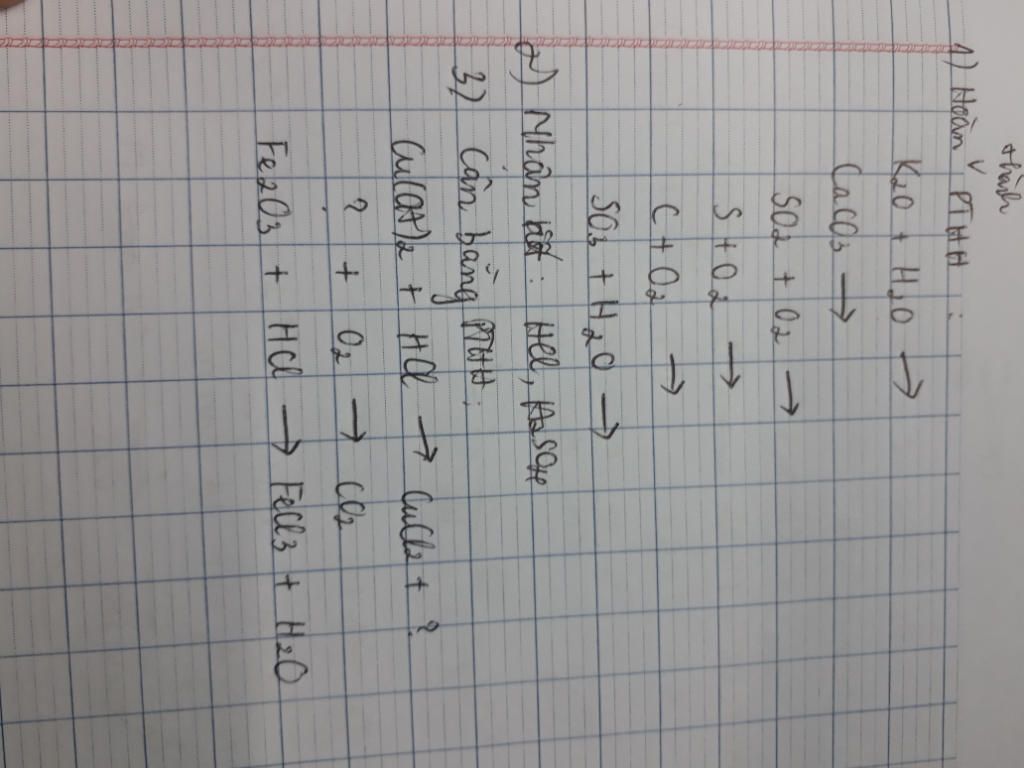 1) Hoàn thành PTHH:
K2O + H2O →
CaCO3 →
SO2 + O2 →
S + O2 →
C + O2 →
SO3 + H2O →
2) Nhận biết: HCl, H2SO4
3) Cân bằng PTHH:
Cu(OH)2 + HCl → CuCl2 + ?
? + O2 → CO2
Fe2O3 + HCl → FeCl3 + H2O